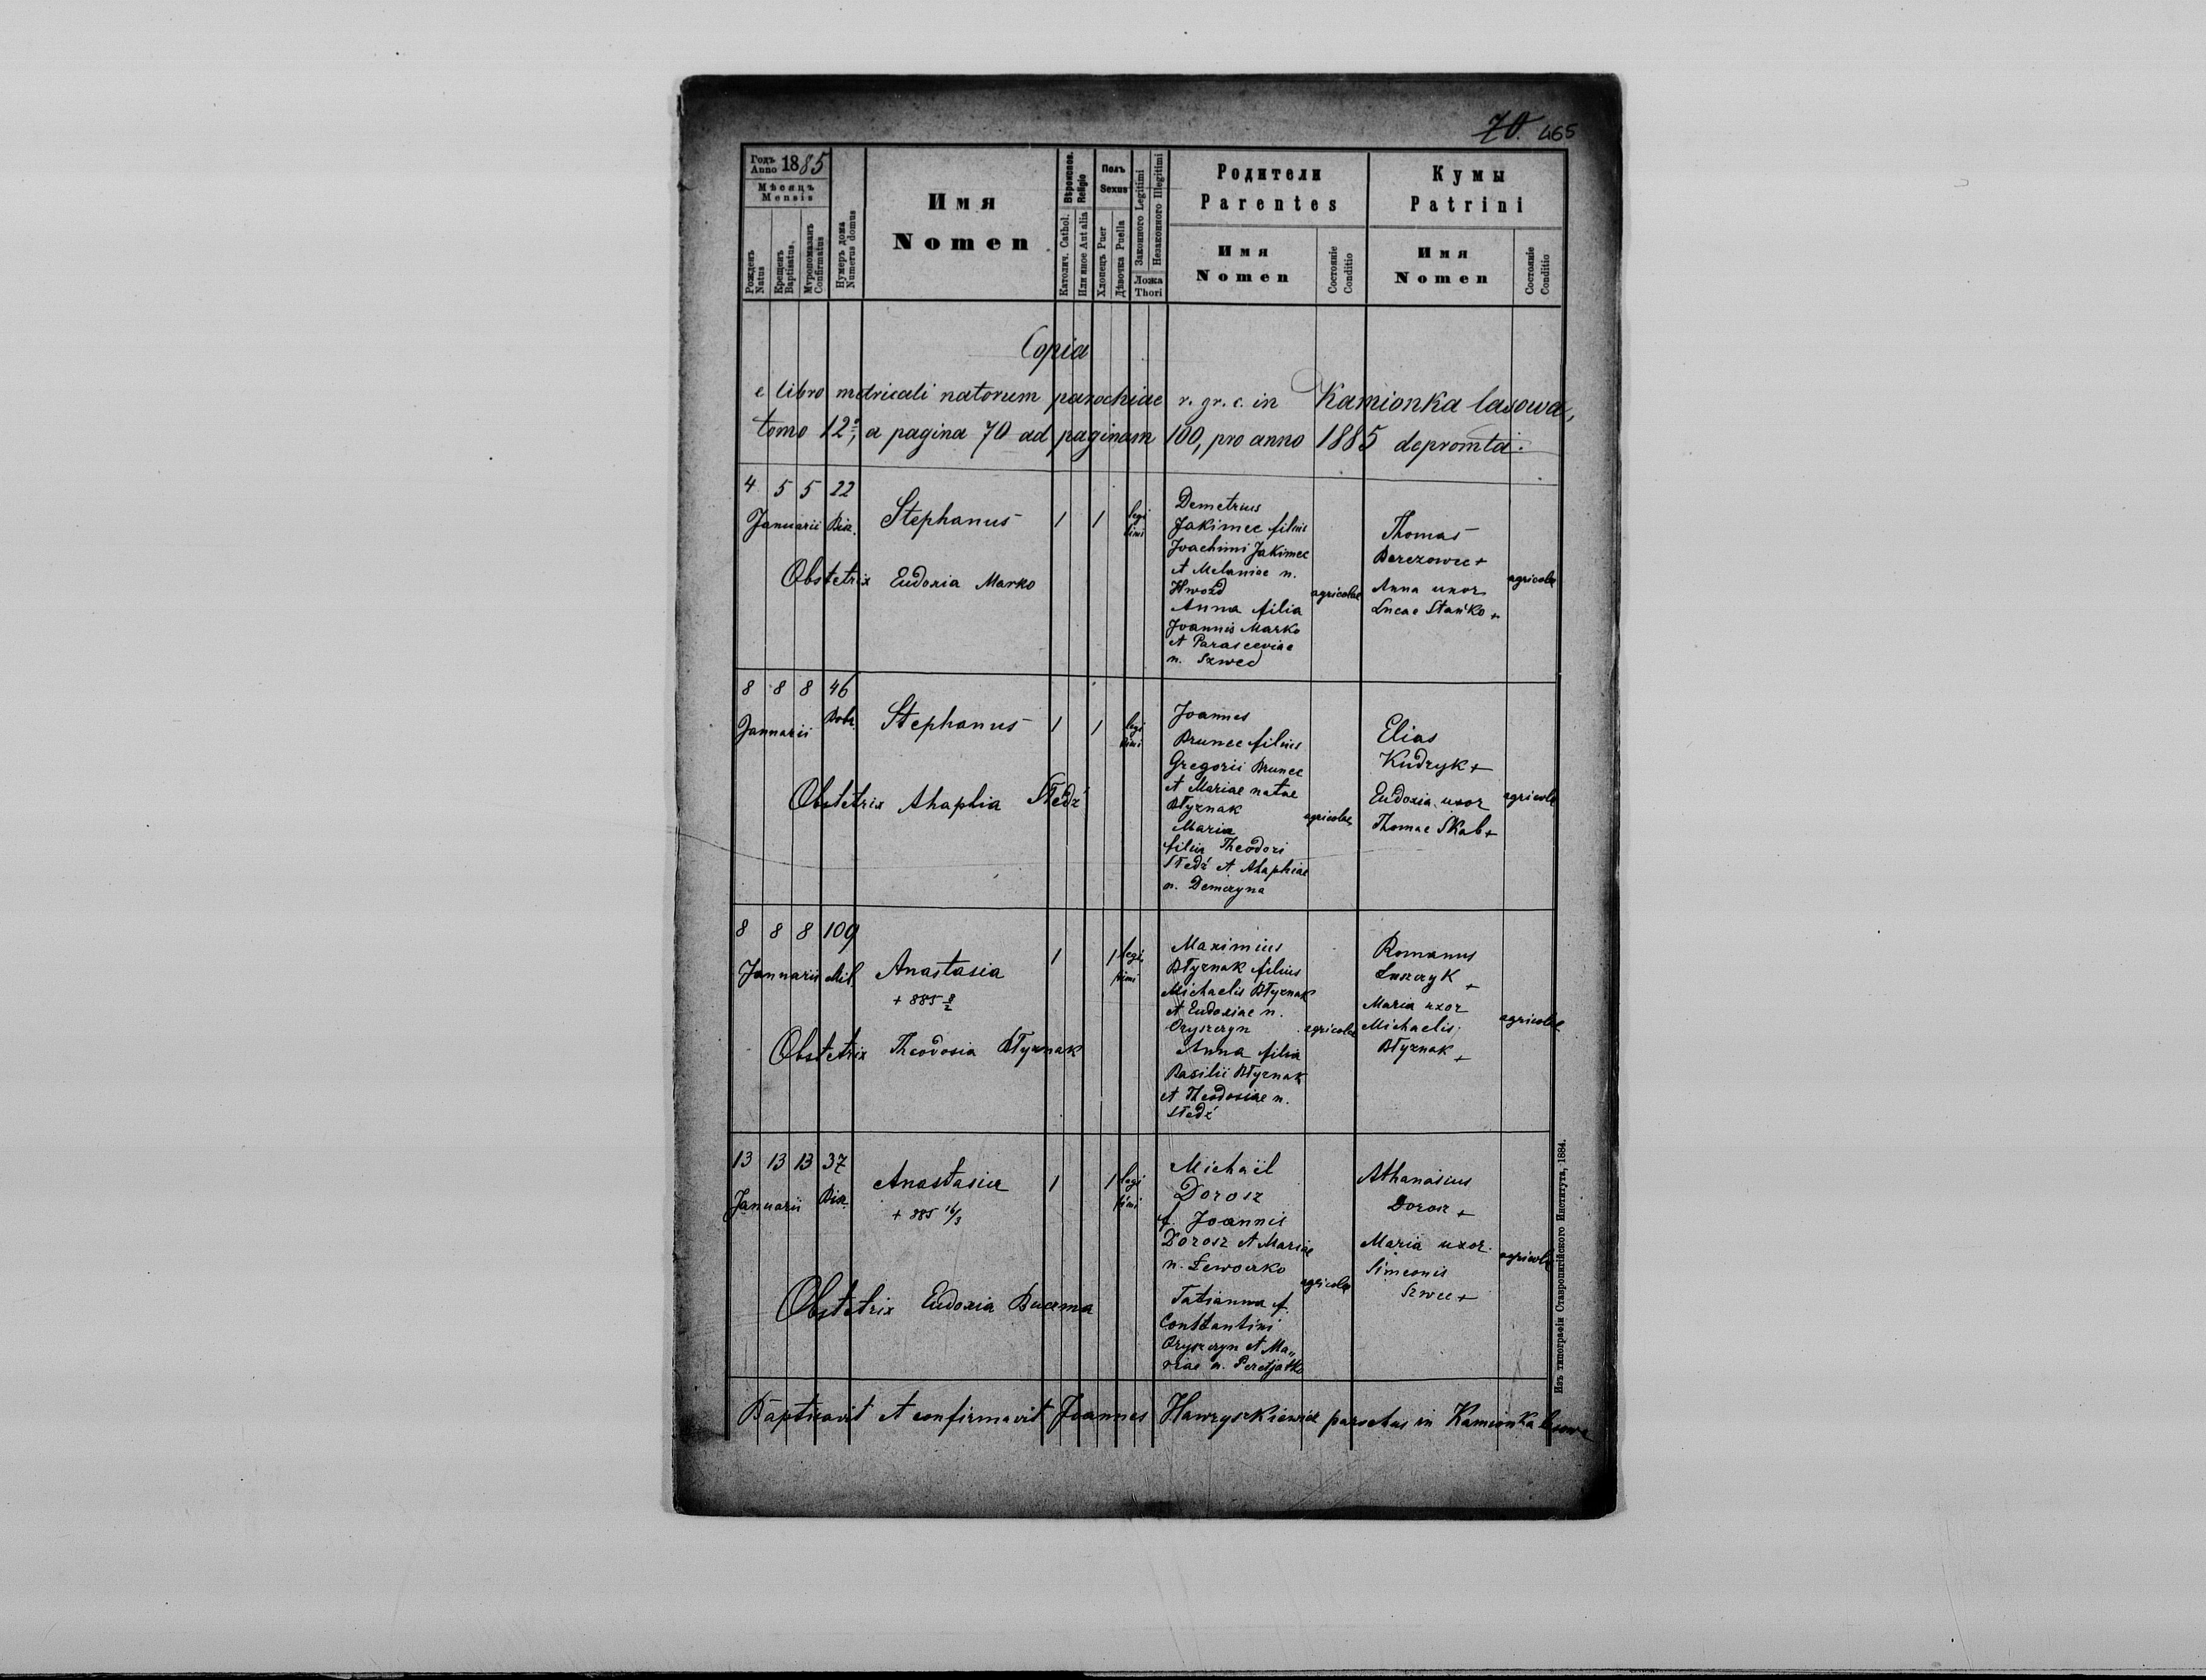 70. 465
Годъ Anno 1885
Мѣсяцъ
Mensis
Рожденъ Natus
Крещенъ Baptisatus
Мѵропомазанъ Confirmatus
Нумеръ дома Numerus domus
Имя
Nomen
Вѣроисповѣд. Religio
Католич. Cathol.
Или иное Aut alia
Полъ
Sexus
Хлопецъ Puer
Дѣвочка Puella
Законного Legitimi
Незаконного Illegitimi
Ложа
Thori
Родители
Parentes
Имя
Nomen
Состояніе Conditio
Кумы
Patrini
Имя
Nomen
Состояніе Conditio
Copia
e libro metricali natorum parochiae r. gr. c. in Kamionka lasowa,
tomo 12º, a pagina 70 ad paginam 100, pro anno 1885 depromta.
4 5 5 22
Januarii
Stephanus
1 1 legi
timi
Obstetrix Eudoxia Marko
Demetrius
Jakimec filius
Joachimi Jakimec
et Melaniae n.
Hwozd
Anna filia
Joannis Marko
et Parasceviae
n. Szwed
agricolae
Thomas
Berezowec +
Anna uxor
Lucae Stańko +
agricolae
8 8 8 46
Januarii
Stephanus
1 1 legi
timi
Obstetrix Ahaphia Sledź
Joannes
Brunec filius
Gregorii Brunec
et Mariae natae
Błyznak
Maria
filia Theodori
Sledź et Ahaphiae
n. Demczyna
agricolae
Elias
Kudryk +
Eudoxia uxor
Thomae Skab +
agricolae
8 8 8 109
Januarii Mil.
Anastasia
+ 885 8/2
1 1 legi
timi
Obstetrix Theodosia Błyznak
Maximius
Błyznak filius
Michaelis Błyznak
et Eudoxiae n.
Oryszczyn
Anna filia
Basilii Błyznak
et Theodosiae n.
Sledź
agricolae
Romanus
Łuszczyk +
Maria uxor
Michaelis
Błyznak +
agricolae
13 13 13 37
Januarii
Anastasia
+ 885 16/3
1 1 legi
timi
Obstetrix Eudoxia Buczma
Michaël
Dorosz
f. Joannis
Dorosz et Mariae
n. Lewoczko
Tatianna f.
Constantini
Oryszczyn et Ma„
riae n. Peretjatko
agricolae
Athanasius
Dorosz +
Maria uxor
Simeonis
Szwec +
agricolae
Baptisavit et confirmavit Joannes Hawryszkiewicz parochus in Kamionka lasowa
Изъ типографіи Ставропигійского Института, 1884.